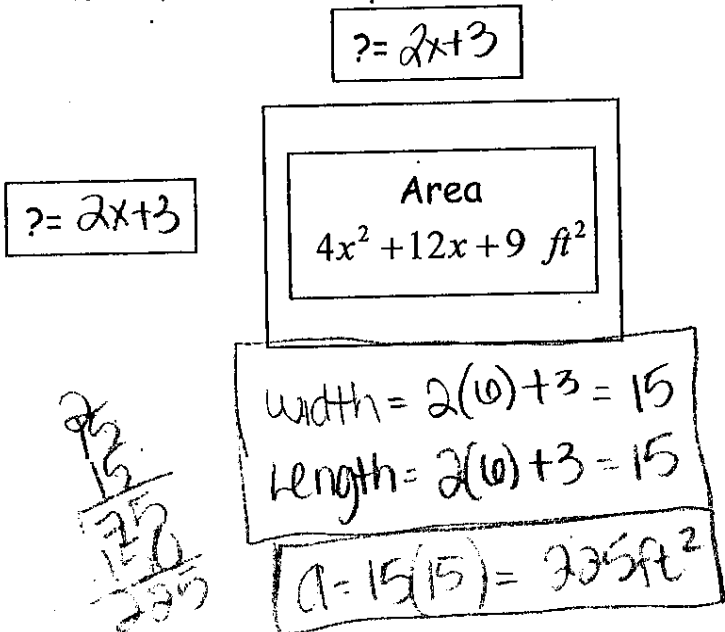 ?= 2x+3
?= 2x+3
Area
4x² +12x+9 ft²
width = 2(6)+3 = 15
Length= 2(6)+3 = 15
a= 15(15)= 225ft²
15
75
150
225